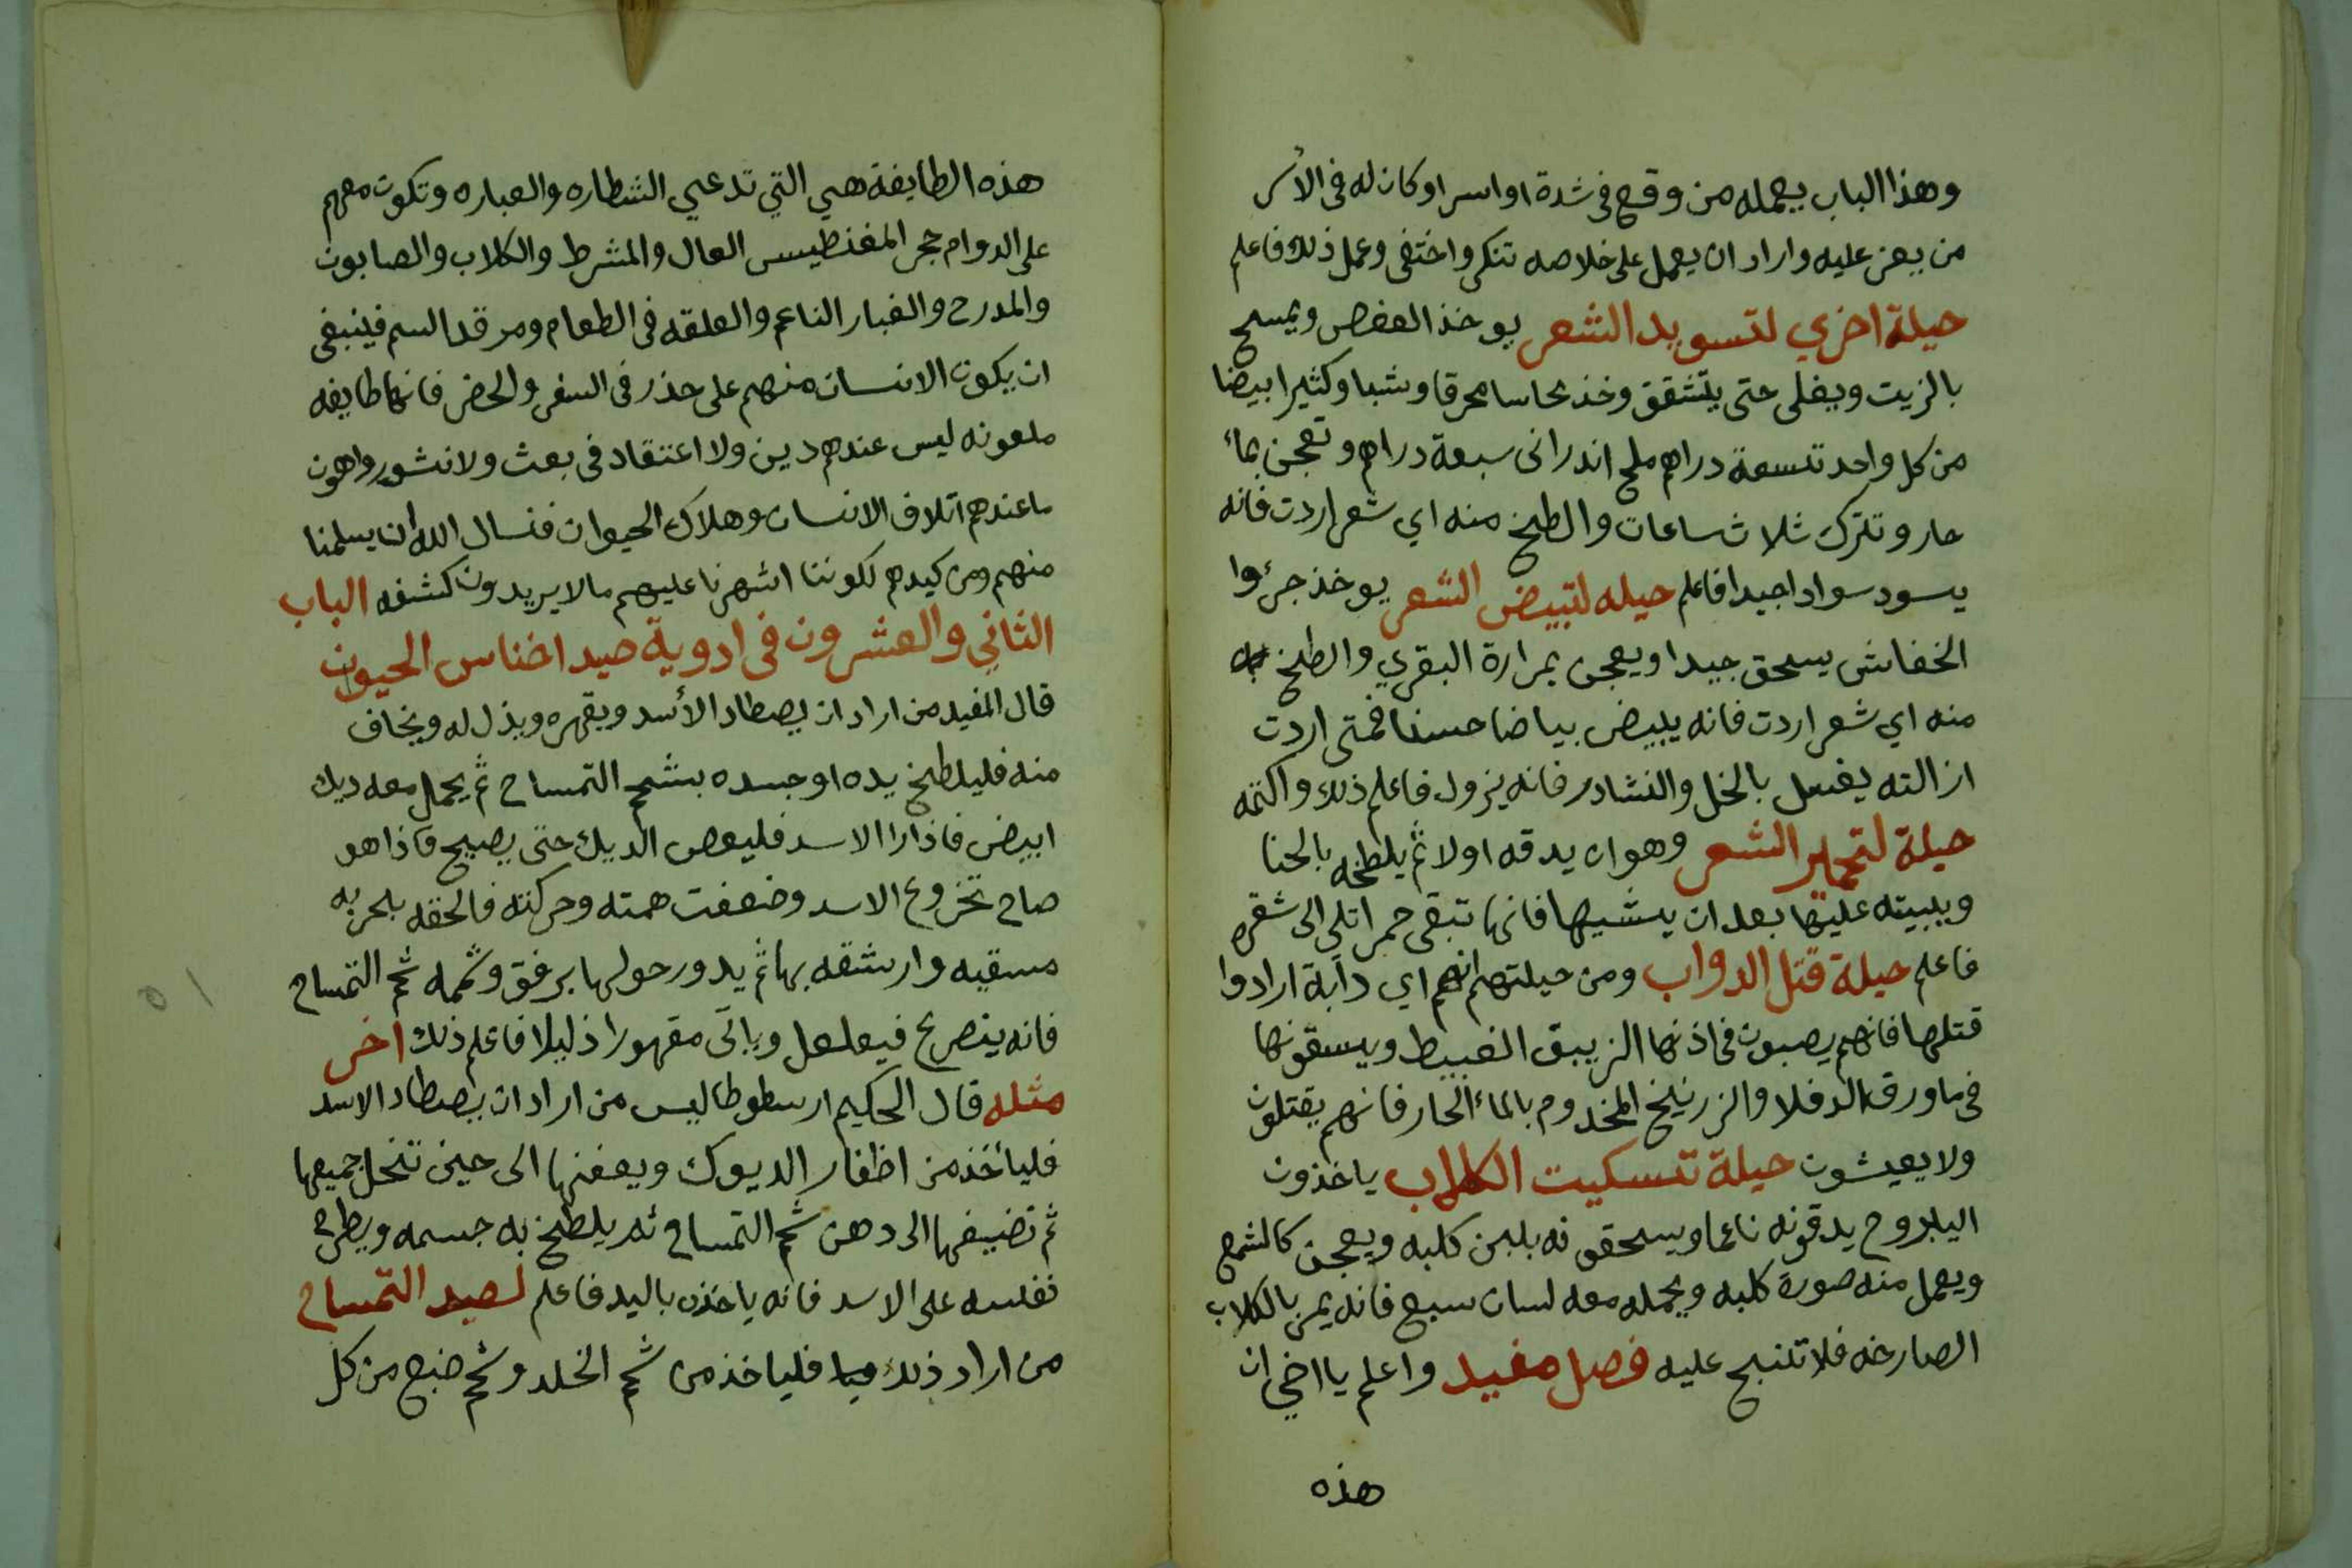 وهذا الباب يعمله من وقع في شدة او اسر او كان له في الأسر
من يعز عليه واراد ان يعمل على خلاصه تنكر واختفى وعمل ذلك فاعلم
حيلة اخري لتسويد الشعر يوخذ العفص ويمسح
بالزيت ويغلى حتى يتشقق وخذ نحاسا محرقا وشبا وكثيرا بيضا
من كل واحد تسعة دراهم ملح اندراني سبعة دراهم وتعجن بمأ
حار وتترك ثلاث ساعات والطخ منه اي شعر اردت فانه
يسود سوادا جيدا فاعلم حيله لتبيض الشعر يوخذ جرئوا
الخفاش يسحق جيدا ويعجن بمرارة البقري والطخ
منه اي شعر اردت فانه يبيض بياضا حسنا فمتى اردت
ازالته يغسل بالخل والنشادر فانه يزول فاعلم ذلك واكتمه
حيلة لتحمير الشعر وهو ان يدقه اولا ثم يلطخه بالحنا
ويبيته عليها بعد ان يشيها فانها تبقى حمرا تلي الى شقره
فاعلم حيلة قتل الدواب ومن حيلتهم انهم اي دابة ارادوا
قتلها فانهم يصبون في اذنها الزيبق الغبيط ويسقونها
في ما ورق الدفلا والزرنيخ المخدوم بالمأ الحار فانهم يقتلون
ولا يعيشون حيلة تسكيت الكلاب ياخذون
اليبروح يدقونه ناعما ويسحقونه بلبن كلبه ويعجن كالشمع
ويعمل منه صورة كلبه ويحمله معه لسان سبع فانه يمر بالكلاب
الصارخه فلا تنبح عليه فصل مفيد واعلم يا اخي ان
هذه
هذه الطايفة هي التي تدعي الشطاره والعباره وتكون معهم
على الدوام حجر المغنطيس العال والمشرط والكلاب والصابون
والمدرح والغبار الناعم والعلقه في الطعام ومرقد السم فينبغى
ان يكون الانسان منهم على حذر في السفر والحضر فانها طايفه
ملعونه ليس عندهم دين ولا اعتقاد في بعث ولا نشور واهون
ما عندهم اتلاف الانسان وهلاك الحيوان فنسال الله ان يسلمنا
منهم ومن كيدهم لكوننا اشهرنا عليهم ما لا يريدون كشفه الباب
الثاني والعشرون في ادوية صيد اخناس الحيوان
قال المفيد من اراد ان يصطاد الأسد ويقهره ويذل له ويخاف
منه فليلطخ يده او جسده بشحم التمساح ثم يحمل معه ديك
ابيض فاذا را الاسد فليعص الديك حتى يصيح فاذا هو
صاح تخروع الاسد وضعفت همته وحركته فالحقه بحربه
مسقيه وارشقه بها ثم يدور حولها برفق وشممه شحم التمساح
فانه ينصرع فيعلعل وياتي مقهورا ذليلا فاعلم ذلك اخر
مثله قال الحكيم ارسطوطاليس من اراد ان يصطاد الاسد
فليأخذ من اظفار الديوك ويعفنها الى حين تنحل جميعها
ثم تضيفها الى دهن شحم التمساح ثم يلطخ به جسمه ويطرح
نفسه على الاسد فانه ياخذه باليد فاعلم لصيد التمساح
من اراد ذلك فلياخذ من شحم الخلد وشحم ضبع من كل